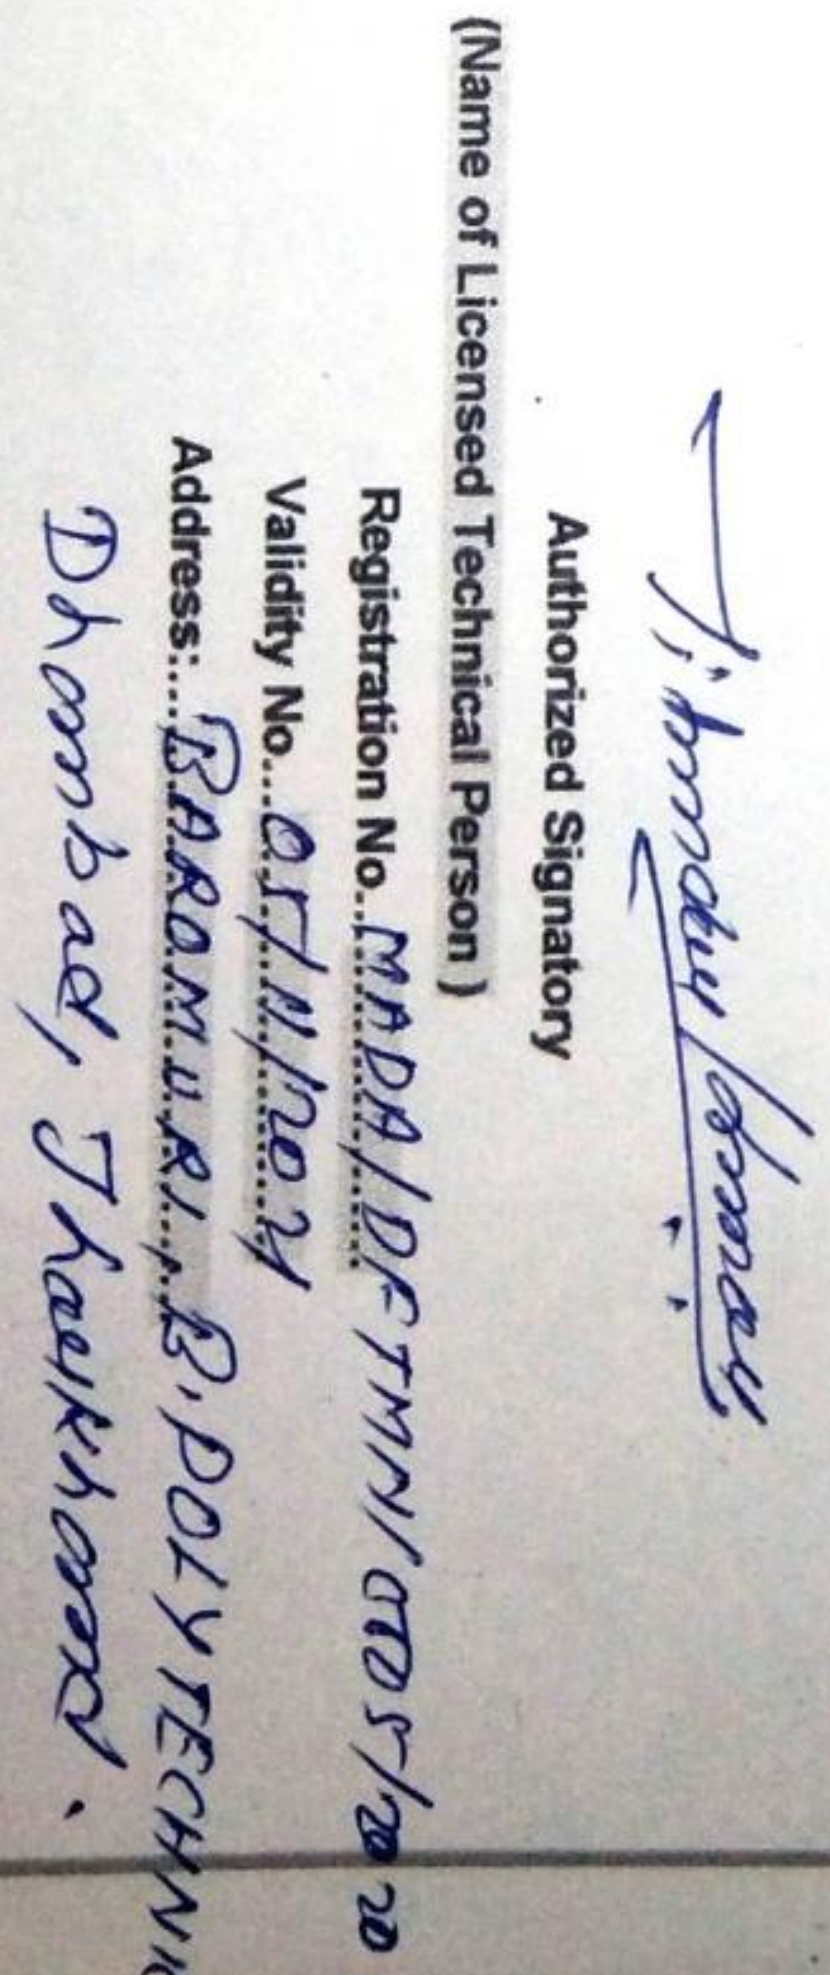 Jitendra Kumar
Authorized Signatory
(Name of Licensed Technical Person)
Registration No...MADA/DFTMN/0005/2020
Validity No...05/11/2024
Address:....BARAMURI, B.POLYTECHNI
Dhanbad, Jharkhand.